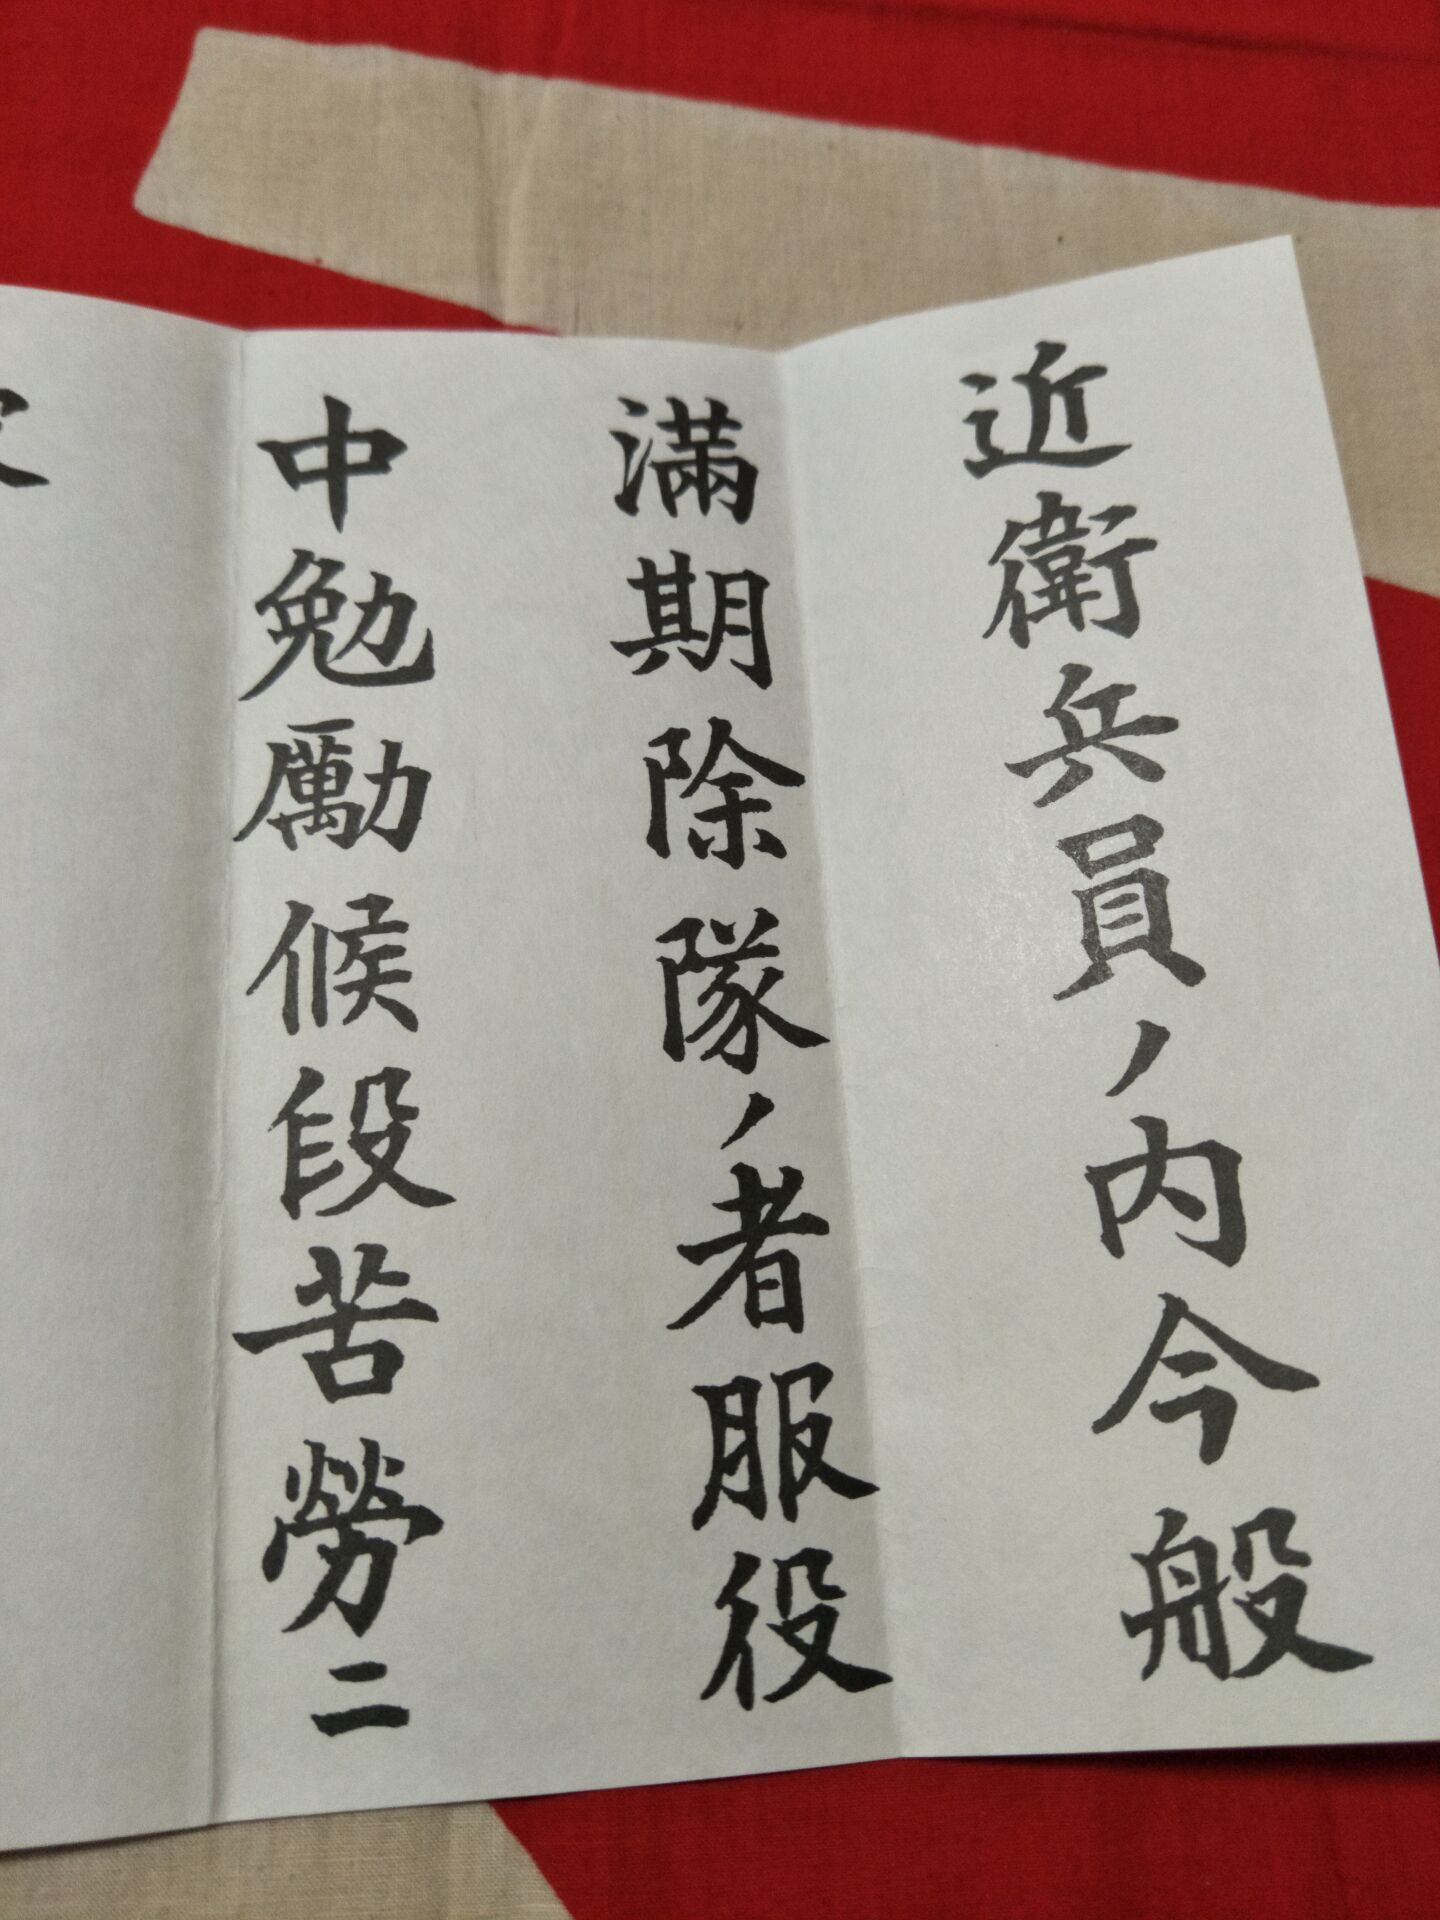 近衛兵員ノ内今般
満期除隊ノ者服役
中勉励候段苦労ニ